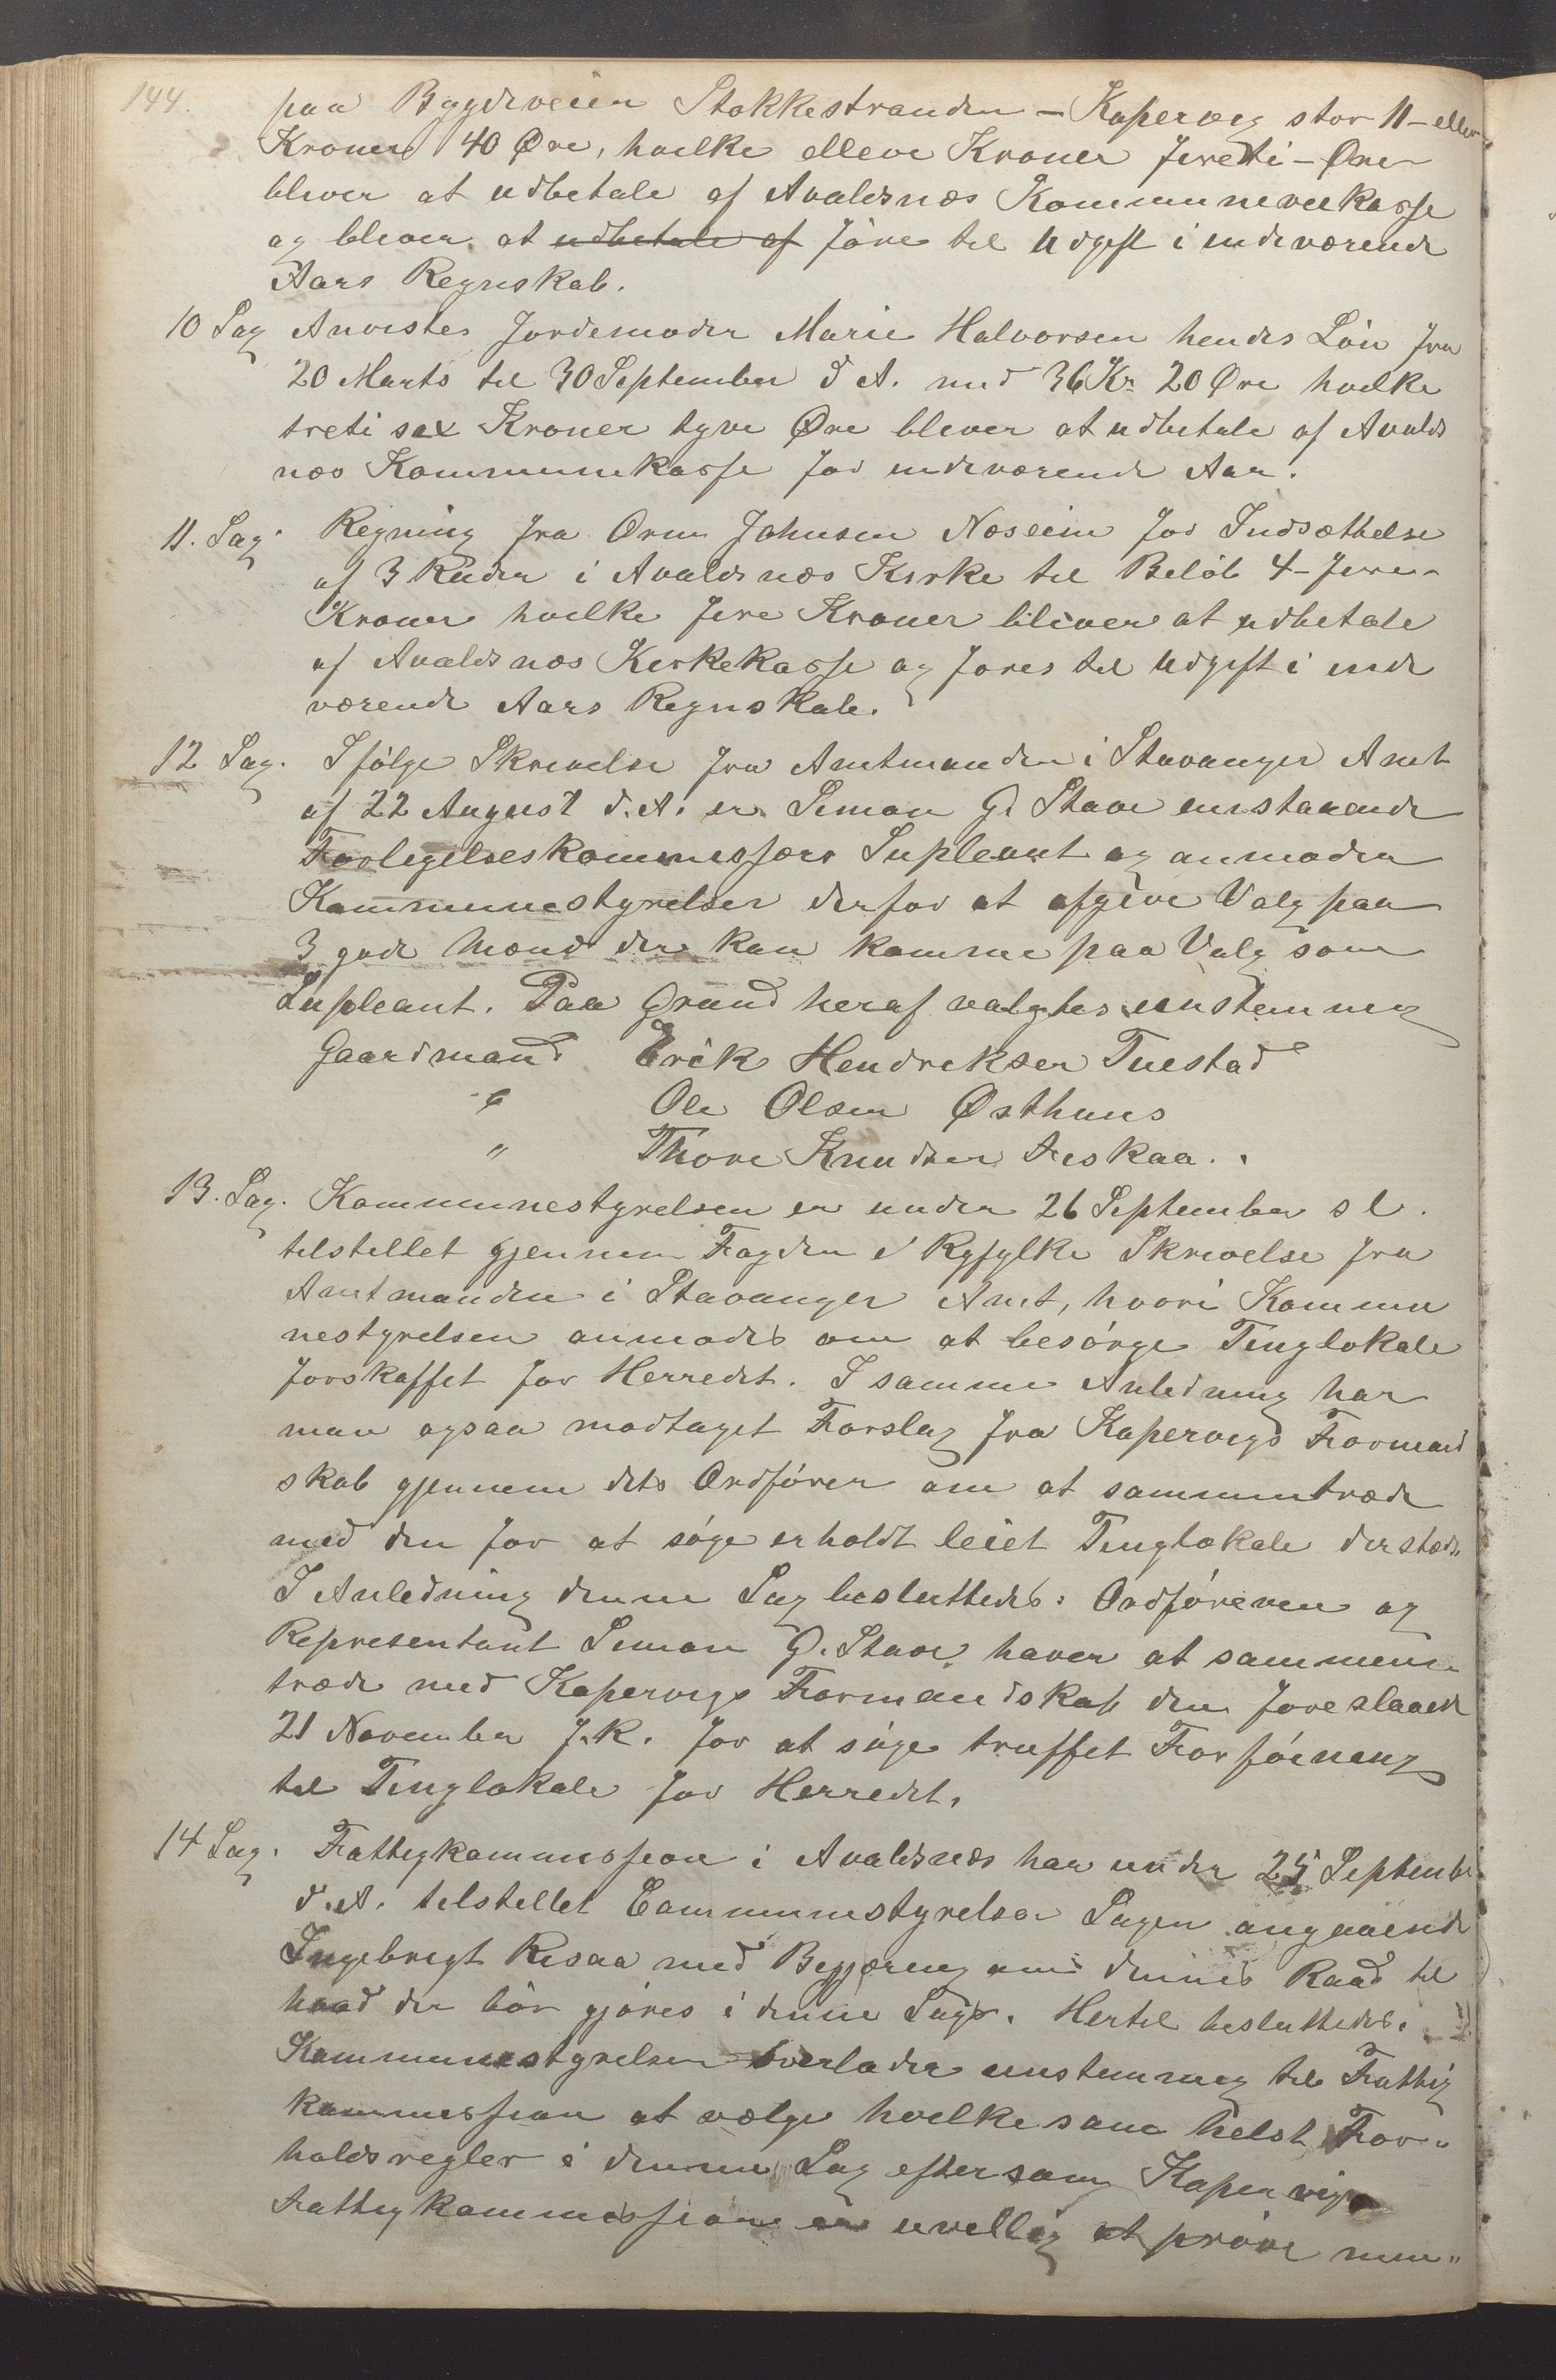 144.
paa Bygdeveien Stokkestranden - Kopervig stor 11 - elleve
Kroner 40 Øre, hvilke elleve Kroner fireti - Øre
bliver at udbetale af Avaldsnæs Kommuneveikasse
og bliver at udbetale af före til Udgift i indeværende
Aars Regnskab.
10 Sag Anvistes Jordemoder Marie Halvorsen hendes Lön fra
20 Marts til 30 September d A. med 36 Kr 20 Øre hvilke
treti sex Kroner tyve Øre bliver at udbetale af Avalds
næs Kommunekasse for indeværende Aar.
11. Sag. Regning fra Orm Johnsen Nøseim for Indsættelse
af 3 Ruder i Avaldsnæs Kirke til Belöb 4 - fire -
Kroner hvilke fire Kroner bliver at udbetale
af Avaldsnæs Kirkekasse og föres til Udgift i inde
værende Aars Regnskab.
12 Sag. Ifölge Skrivelse fra Amtmanden i Stavanger Amt
af 22 August d. A. er Simon G. Stave enstaaende
Forligelseskommissærs Supleant og anmoder
Kommunestyrelsen derfor at afgive Valg paa
3 gode Mænd der kan komme paa Valg som
Supleant. Paa Grund heraf valgtes enstemmig
Gaardmand Erik Hendriksen Tuestad
" Ole Olsen Østhuus
" Thore Knudsen Fiskaa.
13. Sag. Kommunestyrelsen er under 26 September s l.
tilstillet gjennem Fogden i Ryfylke Skrivelse fra
Amtmanden i Stavanger Amt, hvori Kommu
nestyrelsen anmodes om at besörge Tinglokale
forskaffet for Herredet. I samme Anledning har
man ogsaa modtaget Forslag fra Kopervigs Formand
skab gjennem dets Ordförer om at sammentræde
med den for at söge erholdt leiet Tinglokale dersteds
I Anledning denne Sag besluttedes: Ordföreren og
Representant Simon G. Stave haver at sammen
træde med Kopervigs Formandskab den foreslaaede
21 November f. k. for at söge truffet Forföining
til Tinglokale for Herredet.
14 Sag. Fattigkommission i Avaldsnæs har under 25 Septembe
d. A. tilstillet Communestyrelsen Sagen angaaende
Ingebrigt Risaa med Begjæring om dennes Raad til
hvad der bör gjöres i denne Sag. Hertil besluttedes.
Kommunestyrelsen överlader enstemmig til Fattig
kommission at vælge hvilke som helst For-
holdsregler i denne Sag eftersom Kopervigs
Fattigkommission er uvillig at pröve min"